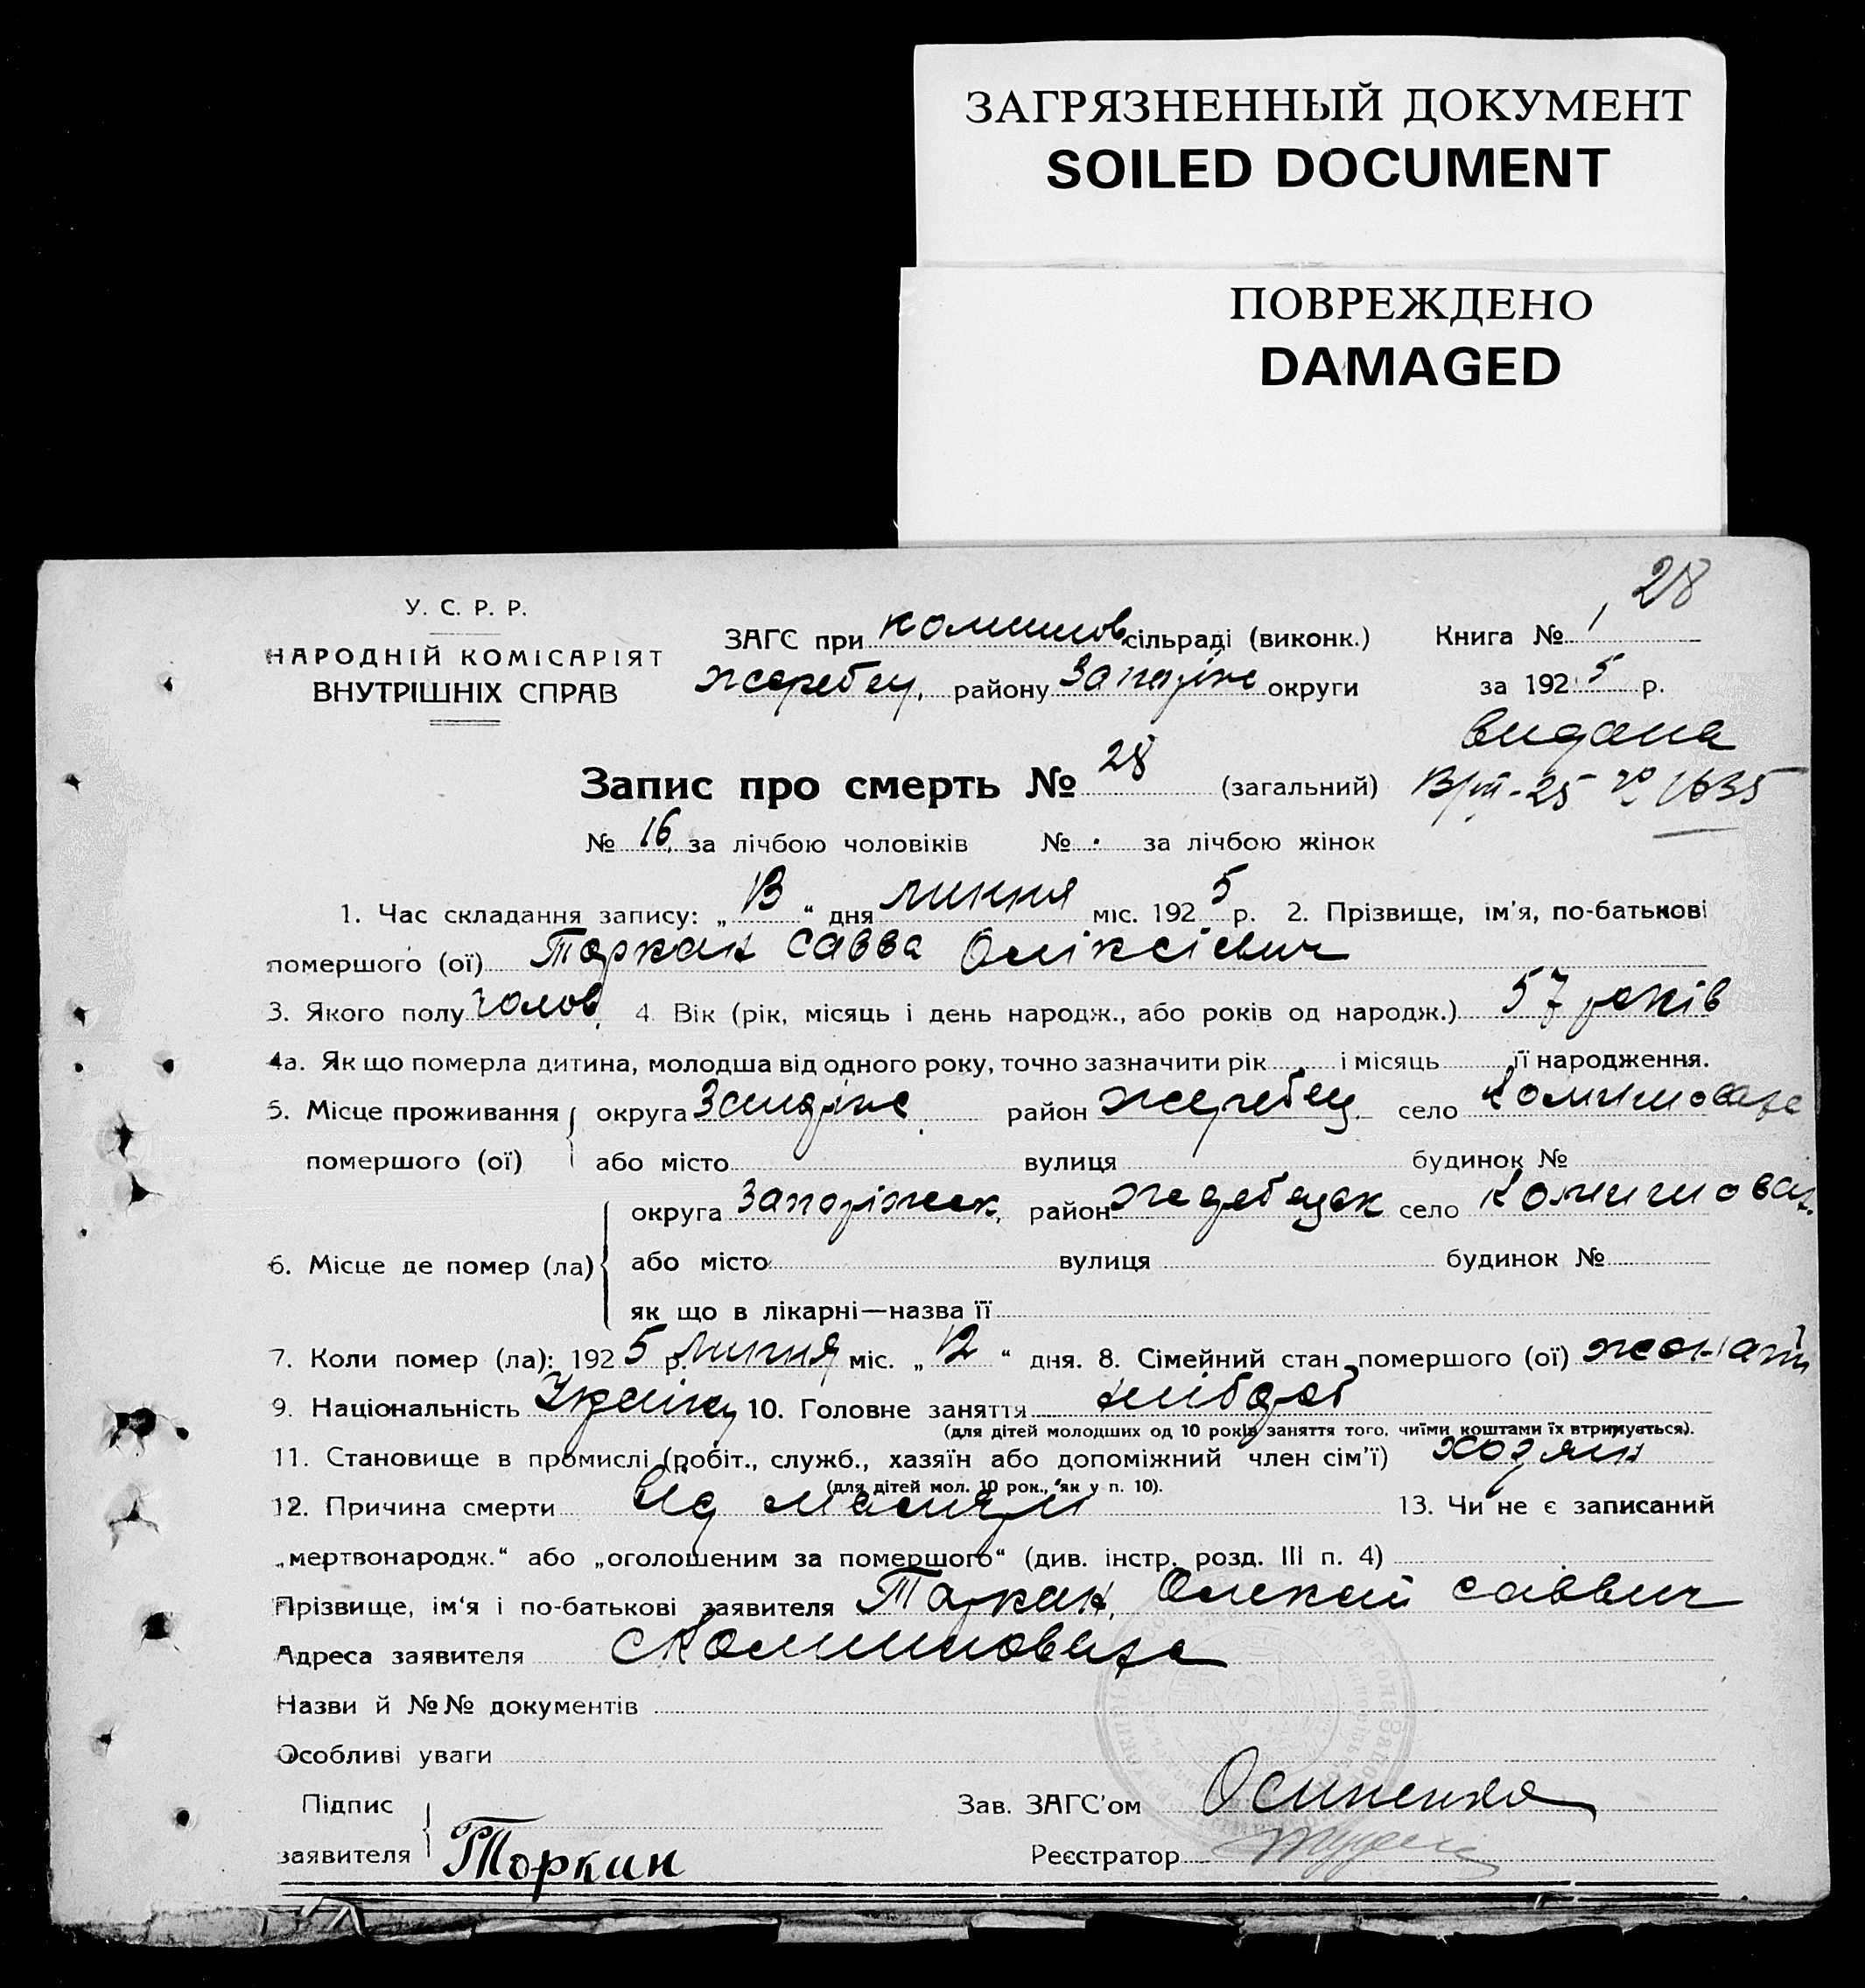 ЗАГРЯЗНЕННЫЙ ДОКУМЕНТ
SOILED DOCUMENT
ПОВРЕЖДЕНО
DAMAGED
28
У. С. Р. Р.
НАРОДНІЙ КОМІСАРІЯТ
ВНУТРІШНІХ СПРАВ
ЗАГС при комишов сільраді (виконк.) Книга № 1
жеребец. району Запоріже округи за 1925 р.
видана
Запис про смерть № 28 (загальний) 25 № 1635
№ 16 за лічбою чоловіків № за лічбою жінок
1. Час складання запису: „13“ дня липня міс. 1925 р. 2. Прізвище, ім'я, по-батькові
помершого (ої) Торкан Савва Оліксієвич
3. Якого полу чолов. 4 Вік (рік, місяць і день народж., або років од народж.) 57 років
4а. Як що померла дитина, молодша від одного року, точно зазначити рік і місяць її народження.
5. Місце проживання округа район жеребец село Комишоваха
помершого (ої) або місто вулиця будинок №
округа Запоріжск. район жеребецск село Комишовах.
6. Місце де помер (ла) або місто вулиця будинок №
як що в лікарні—назва її
7. Коли помер (ла): 1925 р. липня міс. „12“ дня. 8. Сімейний стан помершого (ої) жонати
9. Національність 10. Головне заняття хлібороб
(для дітей молодших од 10 років заняття того, чиїми коштами їх втримується).
11. Становище в промислі (робіт., служб., хазяїн або допоміжний член сім'ї) хозяин
(для дітей мол. 10 рок., як у п. 10).
12. Причина смерти Від малярі 13. Чи не є записаний
„мертвонародж.“ або „оголошеним за помершого“ (див. інстр. розд. III п. 4)
Прізвище, ім'я і по-батькові заявителя Таркан, Олексій Саввич
Адреса заявителя с Комишоваха
Назви й №№ документів
Особливі уваги
Підпис Зав. ЗАГС'ом Осипенко
заявителя Торкин Реєстратор